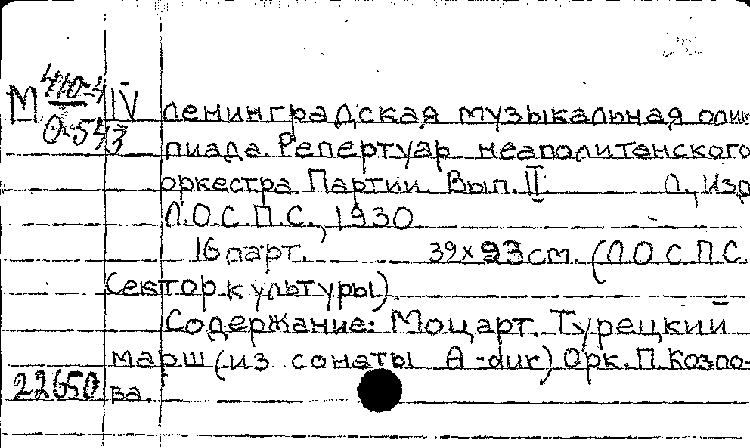 М 410-4 IV Ленинградская музыкальная олим
0-543 пиада. Репертуар неаполитанского
оркестра. Партии. Вып. II. Л., Изд
Л.О.С.П.С., 1930
16 парт. 39х23 см. (Л.О.С.П.С.
Сектор культуры)
Содержание: Моцарт. Турецкий
марш (из сонаты A-dur) Орк. П. Козло-
22650 ва.